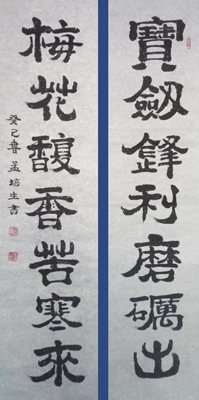 寶劔鋒利磨礪出
梅花馥香苦寒來
癸巳魯孟培生書